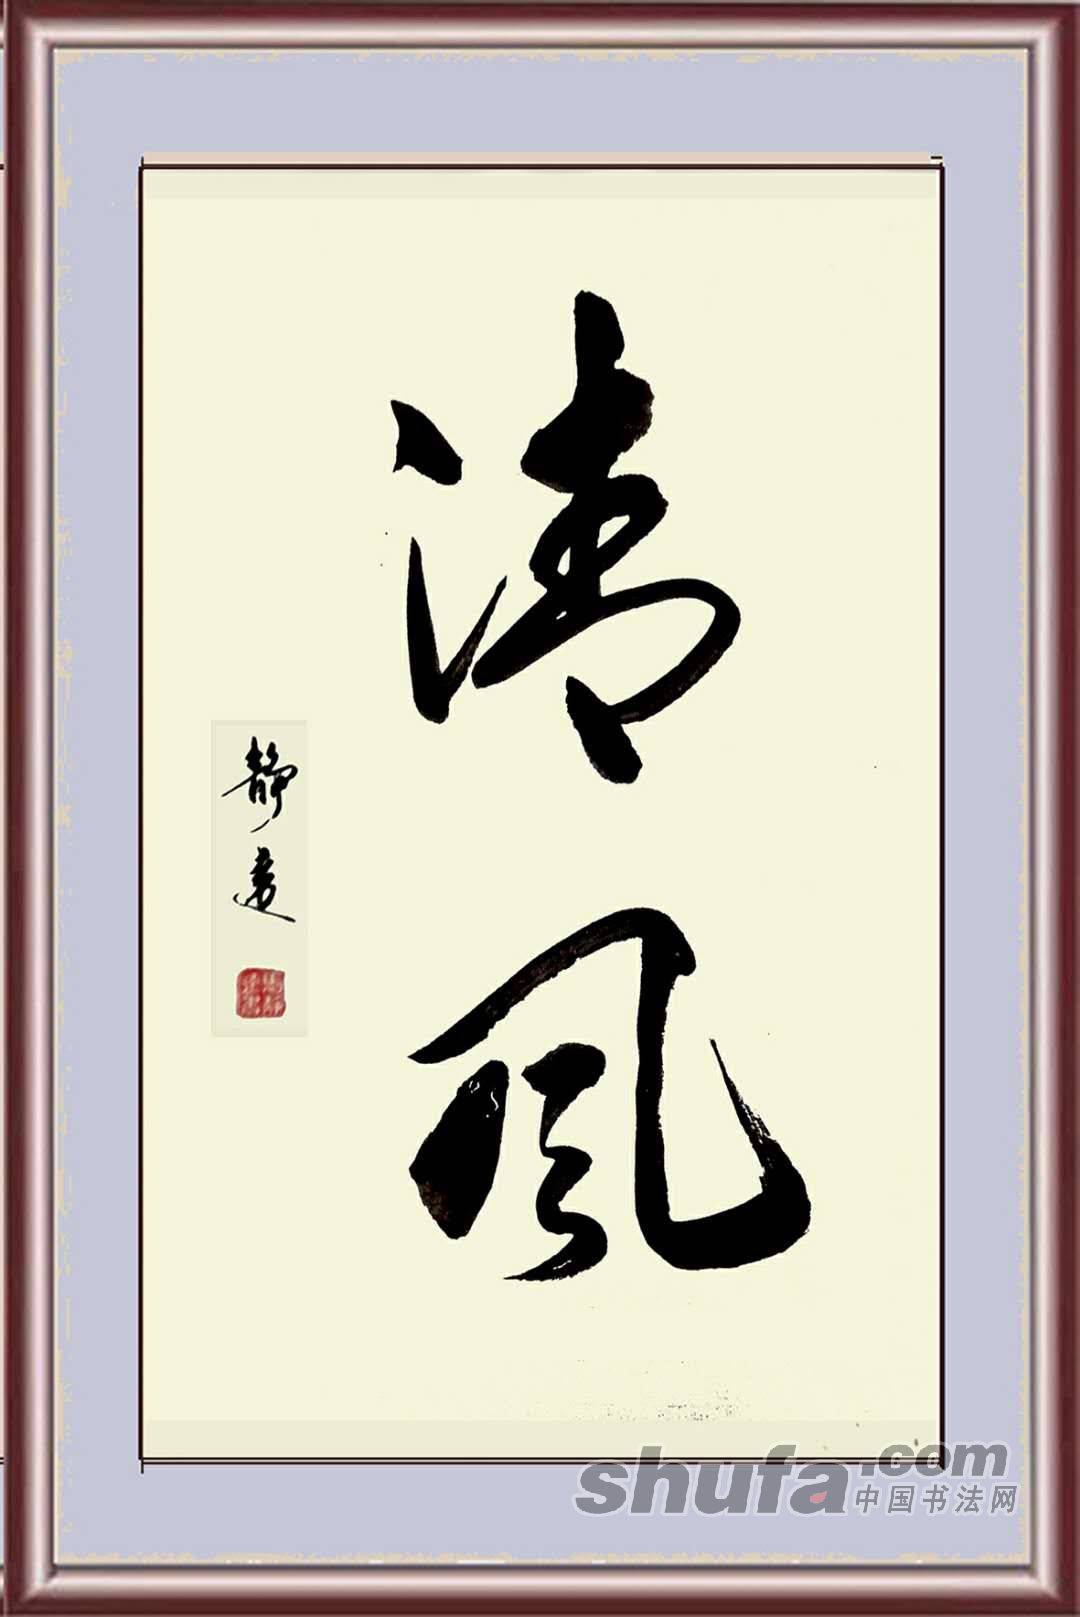 清风
静远
shufa.com
中国书法网